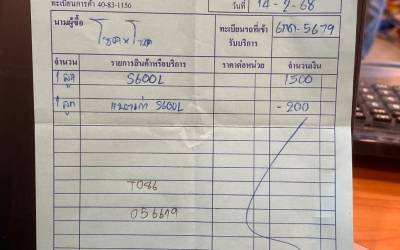 ทะเบียนการค้า 40-83-1156
วันที่ 14-2-68
นามผู้ซื้อ โชค x โชค
ทะเบียนรถที่เข้ารับบริการ 5679
จำนวน รายการสินค้าหรือบริการ ราคาต่อหน่วย จำนวนเงิน
1 ลูก S600L 1500
1 ลูก แบตเก่า S600L -200
T086
056679